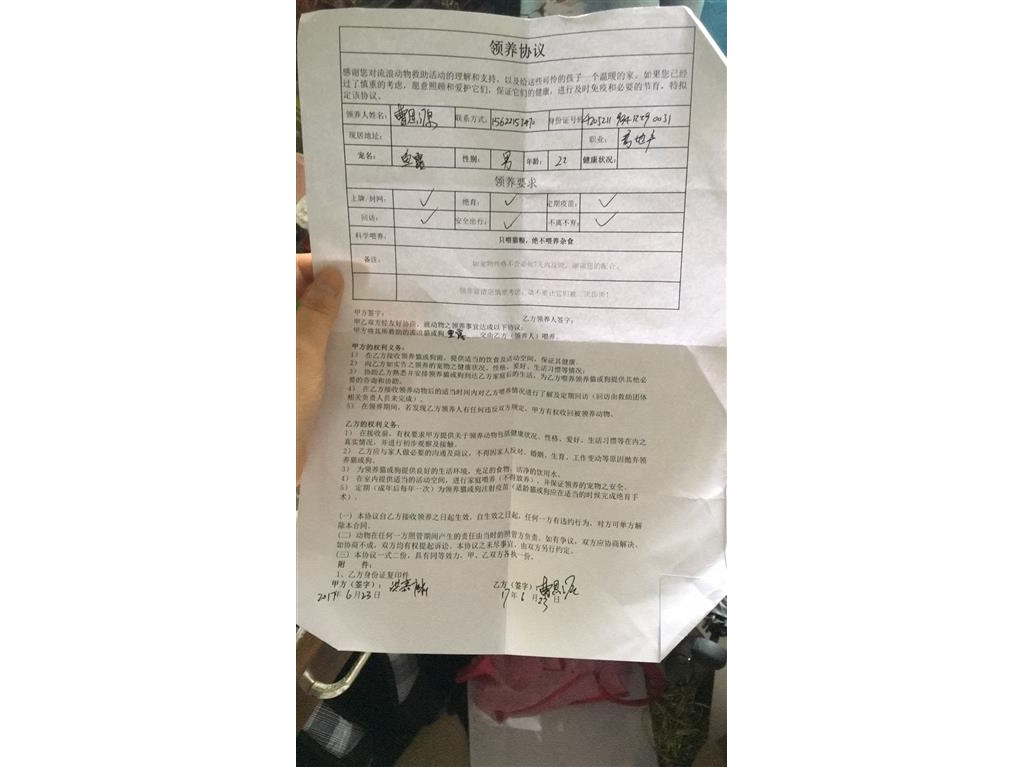 领养协议
感谢您对流浪动物救助活动的理解和支持，以及给这些可怜的孩子一个温暖的家。如果您已经
过了慎重的考虑，愿意照顾和爱护它们，保证它们的健康，进行及时免疫和必要的节育，特拟
定该协议。
领养人姓名： 联系方式： 身份证号码
现居地址： 职业：房地产
宠名： 性别：男 年龄：22 健康状况：
领养要求
上牌/封网：✓ 绝育：✓ 定期疫苗：✓
回访：✓ 安全出行：✓ 不离不弃：✓
科学喂养： 只喂猫粮，绝不喂养杂食
备注： 如宠物性格不合必须7天内反馈，谢谢您的配合。
领养前请您慎重考虑，请不要让它们被二次伤害！
甲方签字： 乙方领养人签字：
甲乙双方经友好协商，就动物之领养事宜达成以下协议：
甲方将其所救助的流浪猫或狗 交由乙方（领养人）喂养。
甲方的权利义务：
1） 在乙方接收领养猫或狗前，提供适当的饮食及活动空间，保证其健康。
2） 向乙方如实告之领养的宠物之健康状况、性格、爱好、生活习惯等情况；
3） 协助乙方熟悉并安排领养猫或狗到达乙方家庭后的生活，为乙方喂养领养猫或狗提供其他必
要的咨询和协助。
4） 在乙方接收领养动物后的适当时间内对乙方喂养情况进行了解及定期回访（回访由救助团体
相关负责人员来完成）。
5） 在领养期间，若发现乙方领养人有任何违反双方规定，甲方有权收回被领养动物。
乙方的权利义务：
1） 在接收前，有权要求甲方提供关于领养动物包括健康状况、性格、爱好、生活习惯等在内之
真实情况，并进行初步观察及接触。
2） 乙方应与家人做必要的沟通及商议，不得因家人反对、婚姻、生育、工作变动等原因抛弃领
养猫或狗。
3） 为领养猫或狗提供良好的生活环境，充足的食物，洁净的饮用水。
4） 在室内提供适当的活动空间，进行家庭喂养（不得放养），并保证领养的宠物之安全。
5） 定期（成年后每年一次）为领养猫或狗注射疫苗（适龄猫或狗应在适当的时候完成绝育手
术）。
（一）本协议自乙方接收领养之日起生效，自生效之日起，任何一方有违约行为，对方可单方解
除本合同。
（二）动物在任何一方照管期间产生的责任由当时的照管方负责。如有争议，双方应协商解决。
如协商不成，双方均有权提起诉讼。本协议之未尽事宜，由双方另行约定。
（三）本协议一式二份，具有同等效力，甲、乙双方各执一份。
附 件：
1、乙方身份证复印件
甲方（签字）： 乙方（签字）：
2017年6月23日 17年6月23日